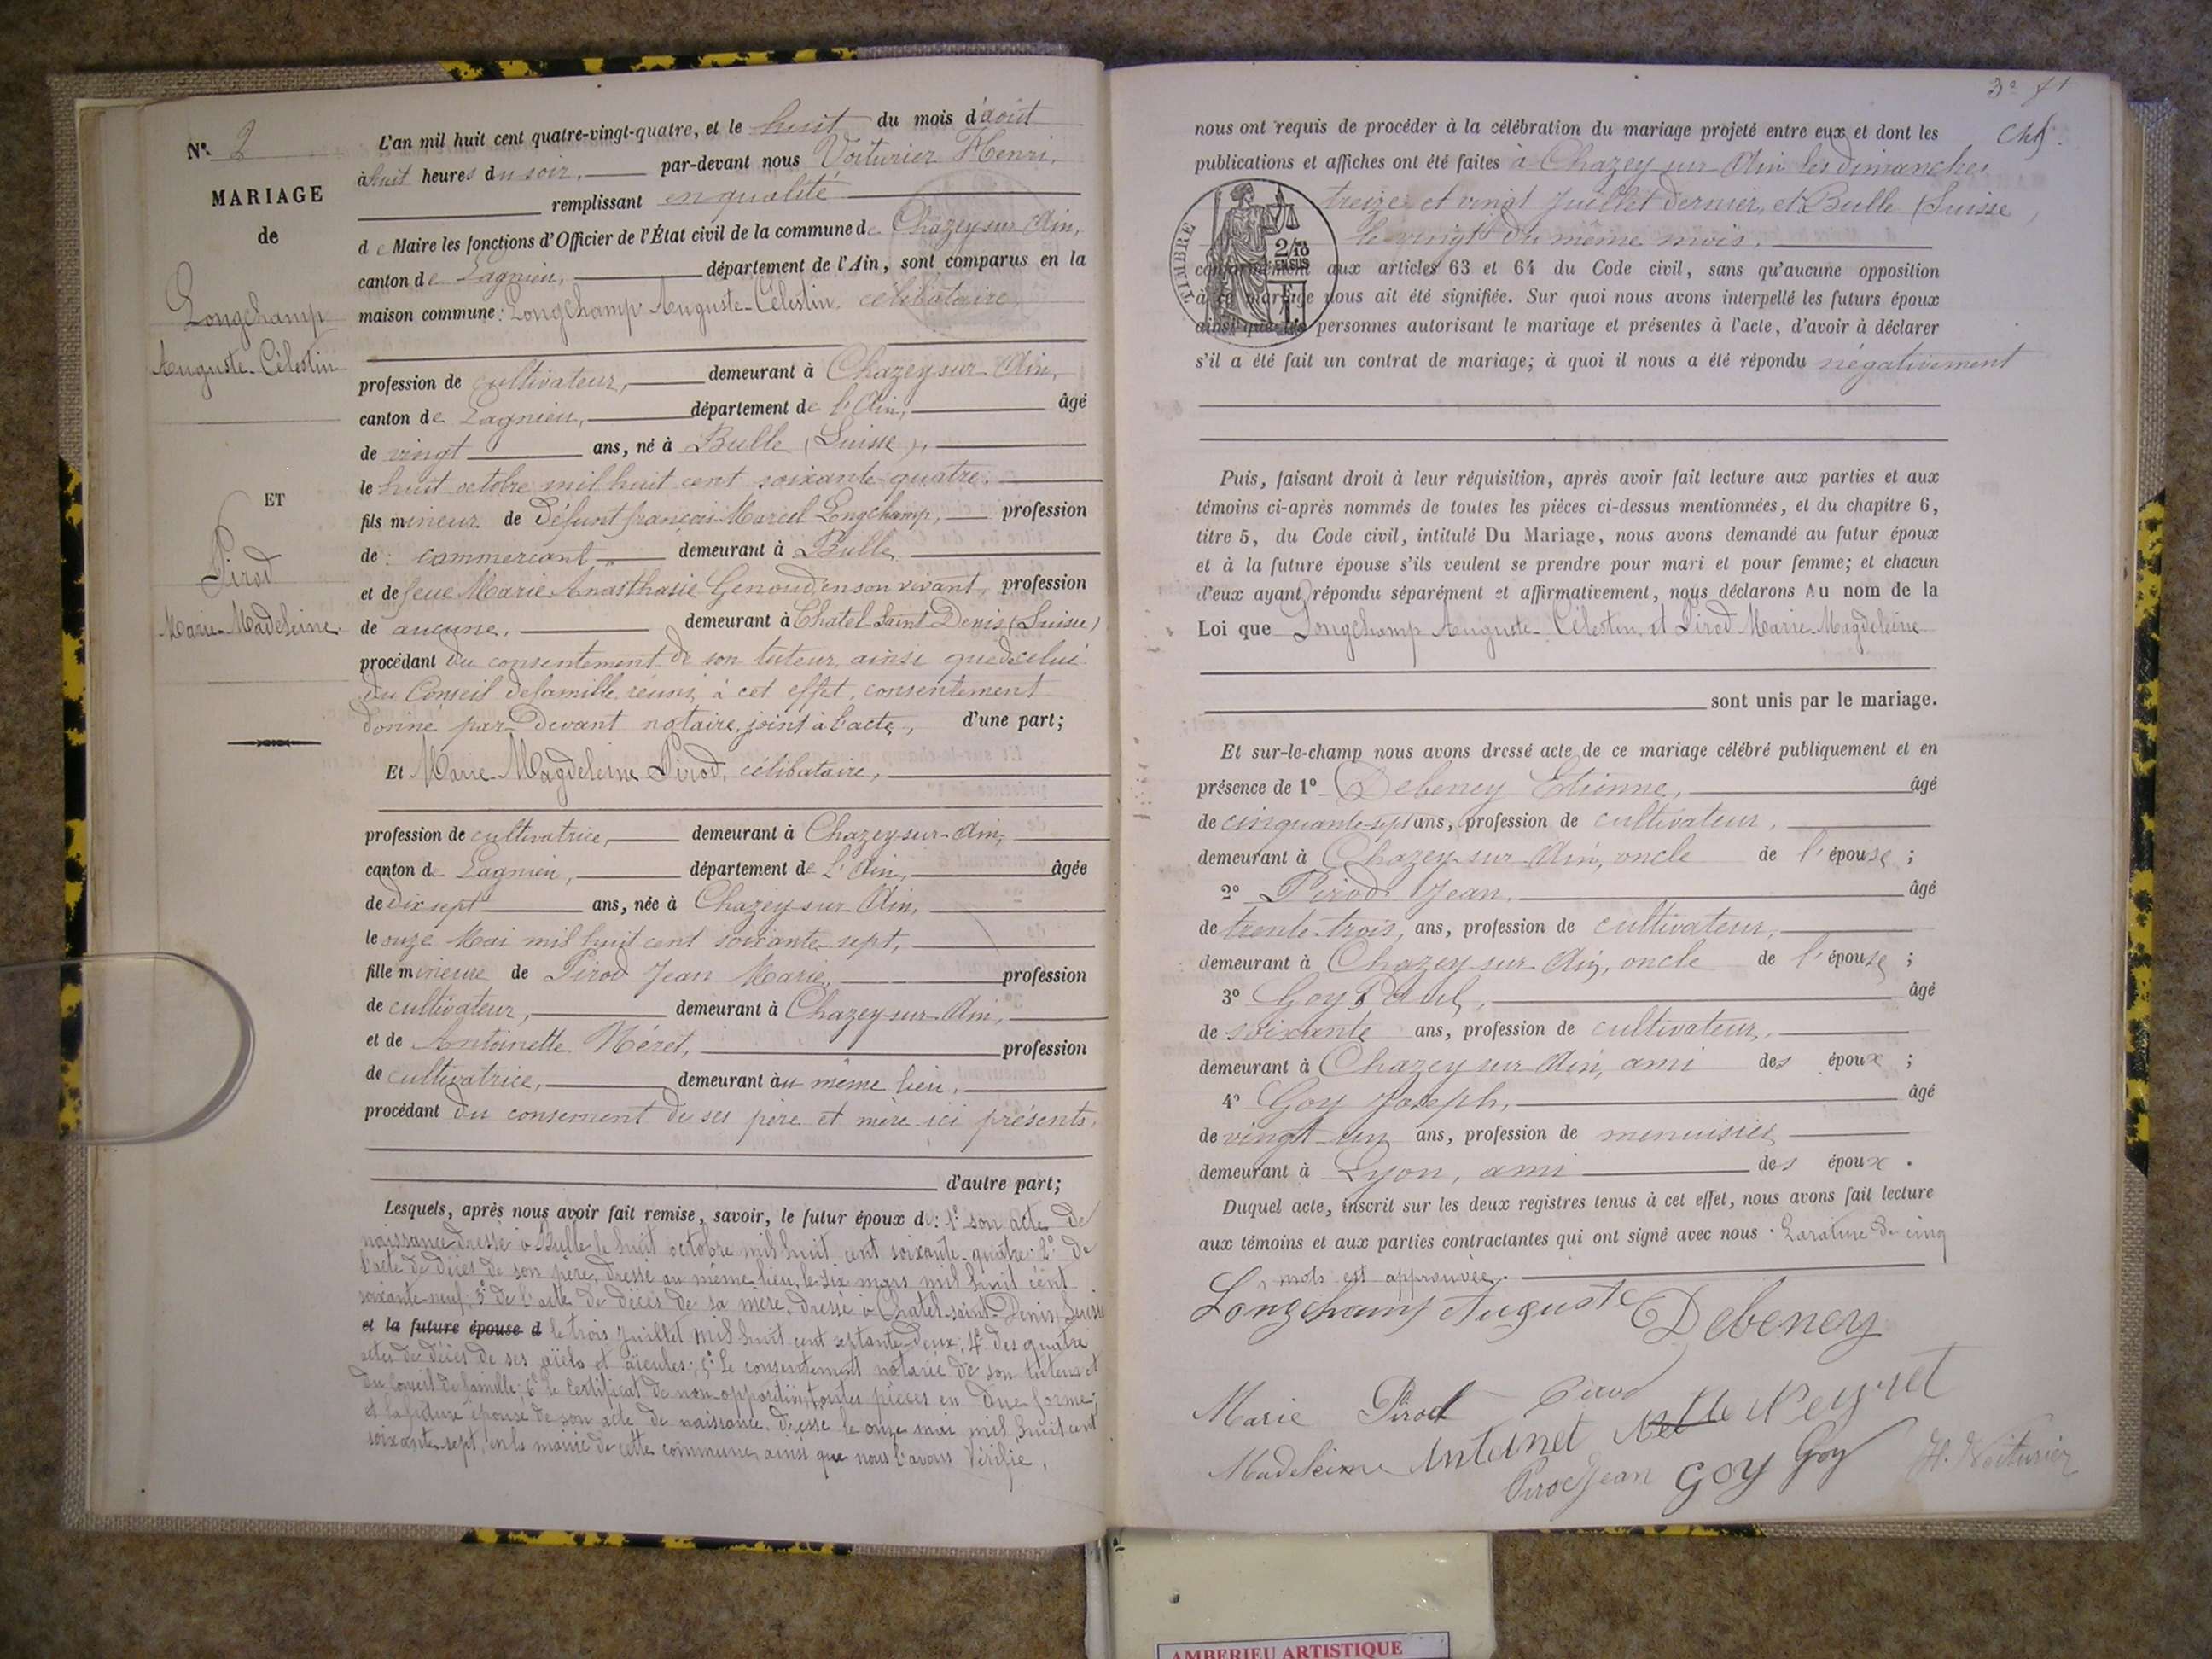 N° 2
MARIAGE
de
Longchamp
Auguste-Célestin
ET
Pirod
Marie-Madeleine
L'an mil huit cent quatre-vingt-quatre, et le huit du mois d'août
à huit heures du soir, par-devant nous Voiturier Henri,
remplissant en qualité
de Maire les fonctions d'Officier de l'État civil de la commune de Chazey sur Ain,
canton de Lagnieu, département de l'Ain, sont comparus en la
maison commune : Longchamp Auguste-Célestin, célibataire,
profession de cultivateur, demeurant à Chazey sur Ain,
canton de Lagnieu, département de l'Ain, âgé
de vingt ans, né à Bulle (Suisse),
le huit octobre mil huit cent soixante-quatre,
fils mineur de Défunt françois-Marcel Longchamp, profession
de : commerçant, demeurant à Bulle
et de feue Marie Anasthasie Genoud, en son vivant, profession
de aucune, demeurant à Chatel Saint Denis (Suisse)
procédant du consentement de son tuteur, ainsi que de celui
du Conseil de famille, réuni à cet effet, consentement
donné par devant notaire, joint à l'acte, d'une part;
Et Marie-Magdeleine Pirod, célibataire,
profession de cultivatrice, demeurant à Chazey-sur-Ain,
canton de Lagnieu, département de l'Ain, âgée
de dix sept ans, née à Chazey sur Ain,
le onze Mai mil huit cent soixante-sept,
fille mineure de Pirod Jean Marie, profession
de cultivateur, demeurant à Chazey-sur-Ain,
et de Antoinette Néret, profession
de cultivatrice, demeurant au même lieu,
procédant du consement de ses père et mère ici présents,
d'autre part;
Lesquels, après nous avoir fait remise, savoir, le futur époux de : 1° son acte de
naissance dressé à Bulle le huit octobre mil huit cent soixante-quatre; 2° de
l'acte de décès de son père, dressé au même lieu, le six mars mil huit cent
soixante-neuf; 3° de l'acte de décès de sa mère, dressé à Chatel-saint-Denis, Suisse
et la future épouse d le trois Juillet mil huit cent septante-deux; 4° des quatre
actes de décès de ses aïels et aïeules; 5° Le consentement notarié de son tuteur et
du Conseil de famille; 6° le certificat de non-opposition, toutes pièces en due forme;
et la future épouse de son acte de naissance, dressé le onze mai mil huit cent
soixante-sept, en la mairie de cette commune, ainsi que nous l'avons vérifié.
3e
nous ont requis de procéder à la célébration du mariage projeté entre eux et dont les
publications et affiches ont été faites à Chazey sur Ain les dimanches
treize et vingt Juillet dernier, et à Bulle (Suisse,
le vingt du même mois,
TIMBRE
2/10
EN SUS
conformément aux articles 63 et 64 du Code civil, sans qu'aucune opposition
à ce mariage nous ait été signifiée. Sur quoi nous avons interpellé les futurs époux
ainsi que les personnes autorisant le mariage et présentes à l'acte, d'avoir à déclarer
s'il a été fait un contrat de mariage; à quoi il nous a été répondu négativement
Puis, faisant droit à leur réquisition, après avoir fait lecture aux parties et aux
témoins ci-après nommés de toutes les pièces ci-dessus mentionnées, et du chapitre 6,
titre 5, du Code civil, intitulé Du Mariage, nous avons demandé au futur époux
et à la future épouse s'ils veulent se prendre pour mari et pour femme; et chacun
d'eux ayant répondu séparément et affirmativement, nous déclarons Au nom de la
Loi que Longchamp Auguste-Célestin, et Pirod Marie-Magdeleine
sont unis par le mariage.
Et sur-le-champ nous avons dressé acte de ce mariage célébré publiquement et en
présence de 1° Debeney Etienne, âgé
de cinquante-sept ans, profession de cultivateur,
demeurant à Chazey-sur-Ain, oncle de l'épouse;
2° Pirod Jean, âgé
de trente-trois, ans, profession de cultivateur,
demeurant à Chazey sur Ain, oncle de l'épouse;
3° Goy Paul, âgé
de soixante ans, profession de cultivateur,
demeurant à Chazey sur Ain, ami des époux;
4° Goy Joseph, âgé
de vingt-un ans, profession de menuisier
demeurant à Lyon, ami des époux.
Duquel acte, inscrit sur les deux registres tenus à cet effet, nous avons fait lecture
aux témoins et aux parties contractantes qui ont signé avec nous. La rature de cinq
mots est approuvée.
Longchamp Auguste Debeney
Marie Pirod Pirod
Madeleine Antoinet Neyret
Pirod Jean Goy Goy H. Voiturier
AMBERIEU ARTISTIQUE